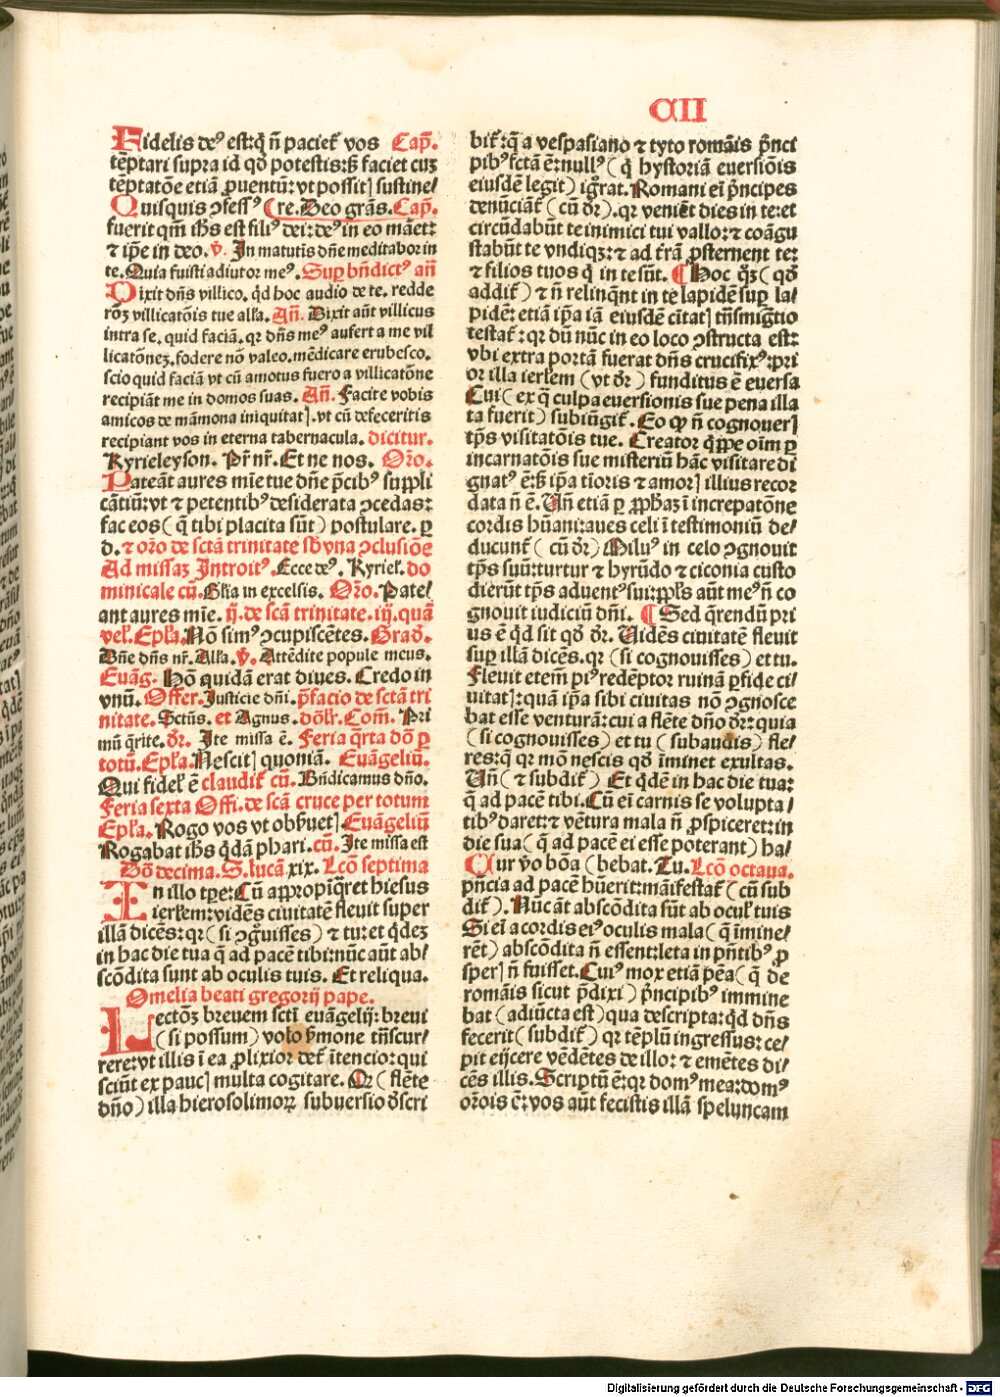 CII
Fidelis deꝰ est: q̄ n̄ paciet᷒ vos Cap̄.
tēptari supra id qd̄ potestis: sꝫ faciet cuꝫ
tēptatōe etiā ꝓuentū: vt possitꝭ sustine/
Quisquis ꝯfessꝰ (re. Deo grās. Cap̄.
fuerit qm̄ ih̄s est filiꝰ dei: deꝰ in eo manet:
⁊ ip̄e in deo. v̄. In matutis dn̄e meditabor in
te. Quia fuisti adiutor meꝰ. Suꝑ bn̄dictꝰ an̄
Dixit dn̄s villico. qd̄ hoc audio de te. redde
rōꝫ villicatōis tue alla. An̄. Dixit aūt villicus
intra se. quid faciā. qꝛ dn̄s meꝰ aufert a me vil
licatōneꝫ. fodere nō valeo. mēdicare erubesco.
scio quid faciā vt cū amotus fuero a villicatōne
recipiāt me in domos suas. An̄. Facite vobis
amicos de māmona iniquitatꝭ. vt cū defeceritis
recipiant vos in eterna tabernacula. dicitur.
Kyrieleyson. Pr̄ nr̄. Et ne nos. Oro.
Pateāt aures mie tue dn̄e p̄cibꝰ suppli
cātiū: vt ⁊ petentibꝰ desiderata ꝯcedas:
fac eos (q̄ tibi placita sūt) postulare. ꝑ
d. ⁊ oro de sctā trinitate sb̄ vna ꝯclusiōe
Ad missaꝫ Introitꝰ. Ecce deꝰ. Kyriel̄. do
minicale cū. Gl̄ia in excelsis. Oro. Pate/
ant aures mie. ij. de sctā trinitate. iij. quā
vel̄. Ep̄la. Nō simꝰ ꝯcupiscētes. Grad̄.
Dn̄e dn̄s nr̄. Alla. v̄. Attēdite popule meus.
Euāg. Hō quidā erat diues. Credo in
vnū. Offer. Justicie dn̄i. p̄facio de sctā tri
nitate. Sctūs. et Agnus. dōl̄r. Com̄. Pri
mū q̄rite. dr̄. Ite missa ē. Feria q̄rta dō ꝑ
totū. Ep̄la. Nescitꝭ quoniā. Euāgeliū.
Qui fidel̄ ē claudit᷒ cū. Bn̄dicamus dn̄o.
Feria sexta Offi. de scā cruce per totum
Ep̄la. Rogo vos vt obẜuetꝭ Euāgeliū
Rogabat ih̄s qdā phari. cū. Ite missa est
Dō decima. S. lucā xix. Lcō septima
In illo tp̄e: Cū appropīq̄ret hiesus
ierl̄em: vidēs ciuitatē fleuit super
illā dicēs: qꝛ (si ꝯgͣuisses) ⁊ tu: et qd̄eꝫ
in hac die tua q̄ ad pacē tibi: nūc aūt ab/
scōdita sunt ab oculis tuis. Et reliqua.
Omelia beati gregorij pape.
Lectōꝫ breuem sctī euāgelij: breui
(si possum) volo ẜmone trn̄scur/
rere: vt illis ī ea ꝓlixior det᷒ ītencio: qui
sciūt ex paucꝭ multa cogitare. Qꝛ (flēte
dn̄o) illa hierosolimoꝝ subuersio dscri
bit᷒: q̄ a vespasiano ⁊ tyto romāis p̄nci
pibꝰ fctā ē: nullꝰ (q̄ hystoriā euersiōis
eiusdē legit) igr̄at. Romani ei p̄ncipes
denūciāt᷒ (cū dr̄). qꝛ veniēt dies in te: et
circūdabūt te inimici tui vallo: ⁊ coāgu
stabūt te vndiqꝫ: ⁊ ad tr̄ā ꝓsternent te:
⁊ filios tuos q̄ in te sūt. ¶ Hoc qꝫ (qd̄
addit᷒) ⁊ n̄ relinqnt in te lapidē suꝑ la/
pidē: etiā ip̄a iā eiusdē cītatꝭ trn̄smigtio
testat᷒: qꝛ dū nūc in eo loco ꝯstructa est:
vbi extra portā fuerat dn̄s crucifixꝰ: pri
or illa ierl̄em (vt dr̄) funditus ē euersa
Cui (ex q̄ culpa euersionis sue pena illa
ta fuerit) subiūgit᷒. Eo ꝙ n̄ cognouerꝭ
tp̄s visitatōis tue. Creator q̄ppe oīm ꝑ
incarnatōis sue misteriū hāc visitare di
gnatꝰ ē: sꝫ ip̄a tīoris ⁊ amorꝭ illius recor
data n̄ ē. Vn̄ etiā ꝑ ꝓph̄aꝫ ī increpatōne
cordis hūani: aues celi ī testimoniū de/
ducunt᷒ (cū dr̄) Miluꝰ in celo ꝯgnouit
tp̄s suū: turtur ⁊ hyrūdo ⁊ ciconia custo
dierūt tp̄s aduentꝰ sui: ppl̄s aūt meꝰ n̄ co
gnouit iudiciū dn̄i. ¶ Sed q̄rendū pri
us ē qd̄ sit qd̄ dr̄. Vidēs ciuitatē fleuit
suꝑ illā dicēs. qꝛ (si cognouisses) et tu.
Fleuit etem̄ piꝰ redēptor ruinā ꝑfide ci/
uitatꝭ: quā ip̄a sibi ciuitas nō ꝯgnosce
bat esse venturā: cui a flēte dn̄o dr̄: quia
(si cognouisses) et tu (subaudis) fle/
res: q̄ qꝛ mō nescis qd̄ īminet exultas.
Vn̄ (⁊ subdit᷒) Et qd̄e in hac die tua:
q̄ ad pacē tibi. Cū ei carnis se volupta/
tibꝰ daret: ⁊ vētura mala n̄ ꝓspiceret: in
die sua (q̄ ad pacē ei esse poterant) ha/
Cur v̄o bōa (bebat. Tu. Lcō octaua.
p̄ncia ad pacē hūerit: māifestat᷒ (cū sub
dit᷒). Nūc āt abscōdita sūt ab ocul̄ tuis
Si ei a cordis eiꝰ oculis mala (q̄ īmine/
rēt) abscōdita n̄ essent: leta in p̄ntibꝰ ꝓ
sperꝭ n̄ fuisset. Cuiꝰ mox etiā pēa (q̄ de
romāis sicut p̄dixi) p̄ncipibꝰ immine
bat (adiūcta est) qua descripta: qd̄ dn̄s
fecerit (subdit᷒) qꝛ tēplū ingressus: ce/
pit eijcere vēdētes de illo: ⁊ emētes di/
cēs illis. Scriptū ē: qꝛ domꝰ mea: domꝰ
orōis ē: vos aūt fecistis illā speluncam
Digitalisierung gefördert durch die Deutsche Forschungsgemeinschaft - DFG